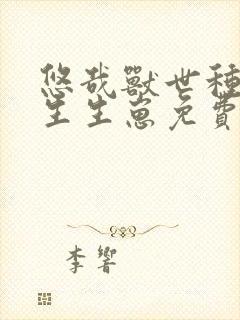 悠哉獸世種
生生崽免費
李響